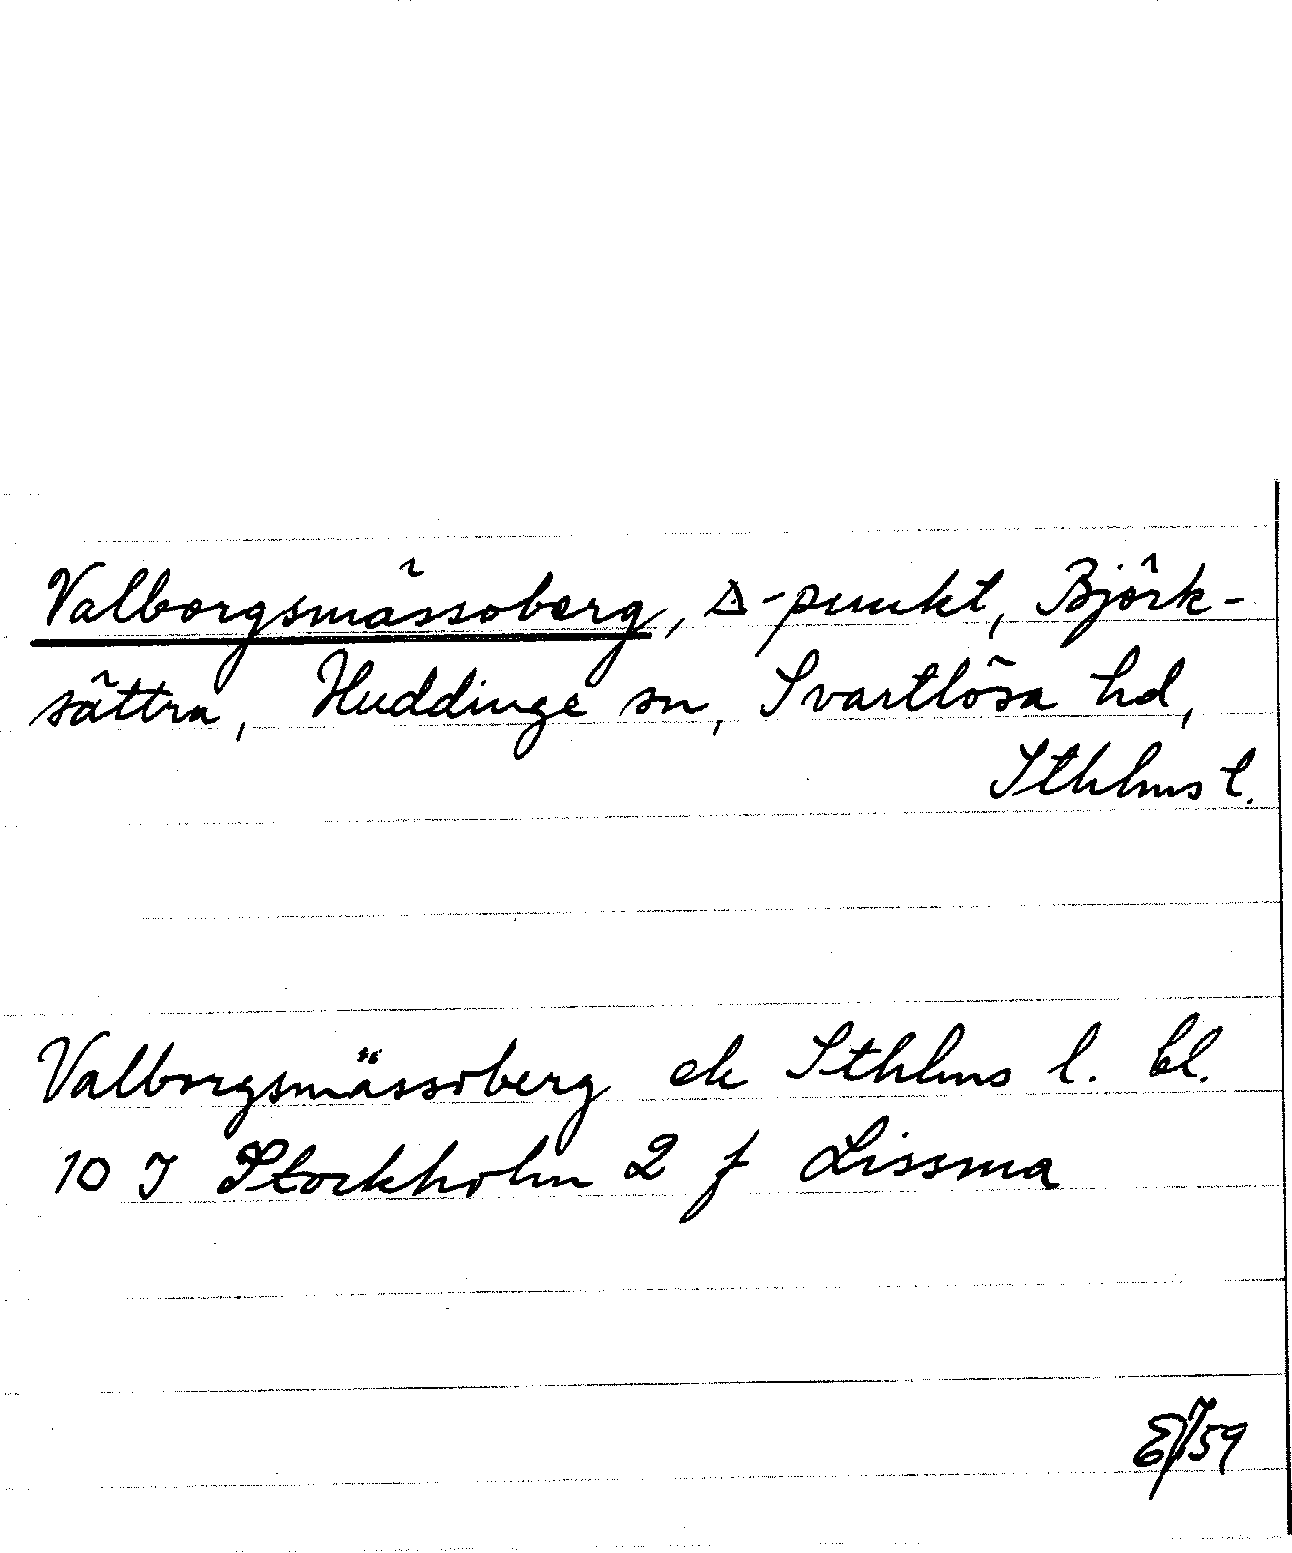 Valborgsmässoberg, Δ-punkt, Björk-
sättra, Huddinge sn, Svartlösa hd,
Sthlms l.
Valborgsmässoberg ek Sthlms l. bl.
10 I Stockholm 2 f Lissma
59